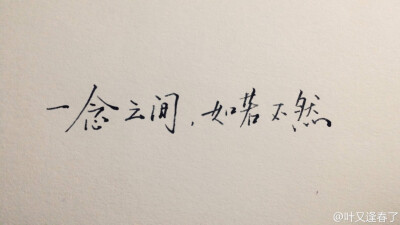 一念之间，如若不然
@叶又逢春了